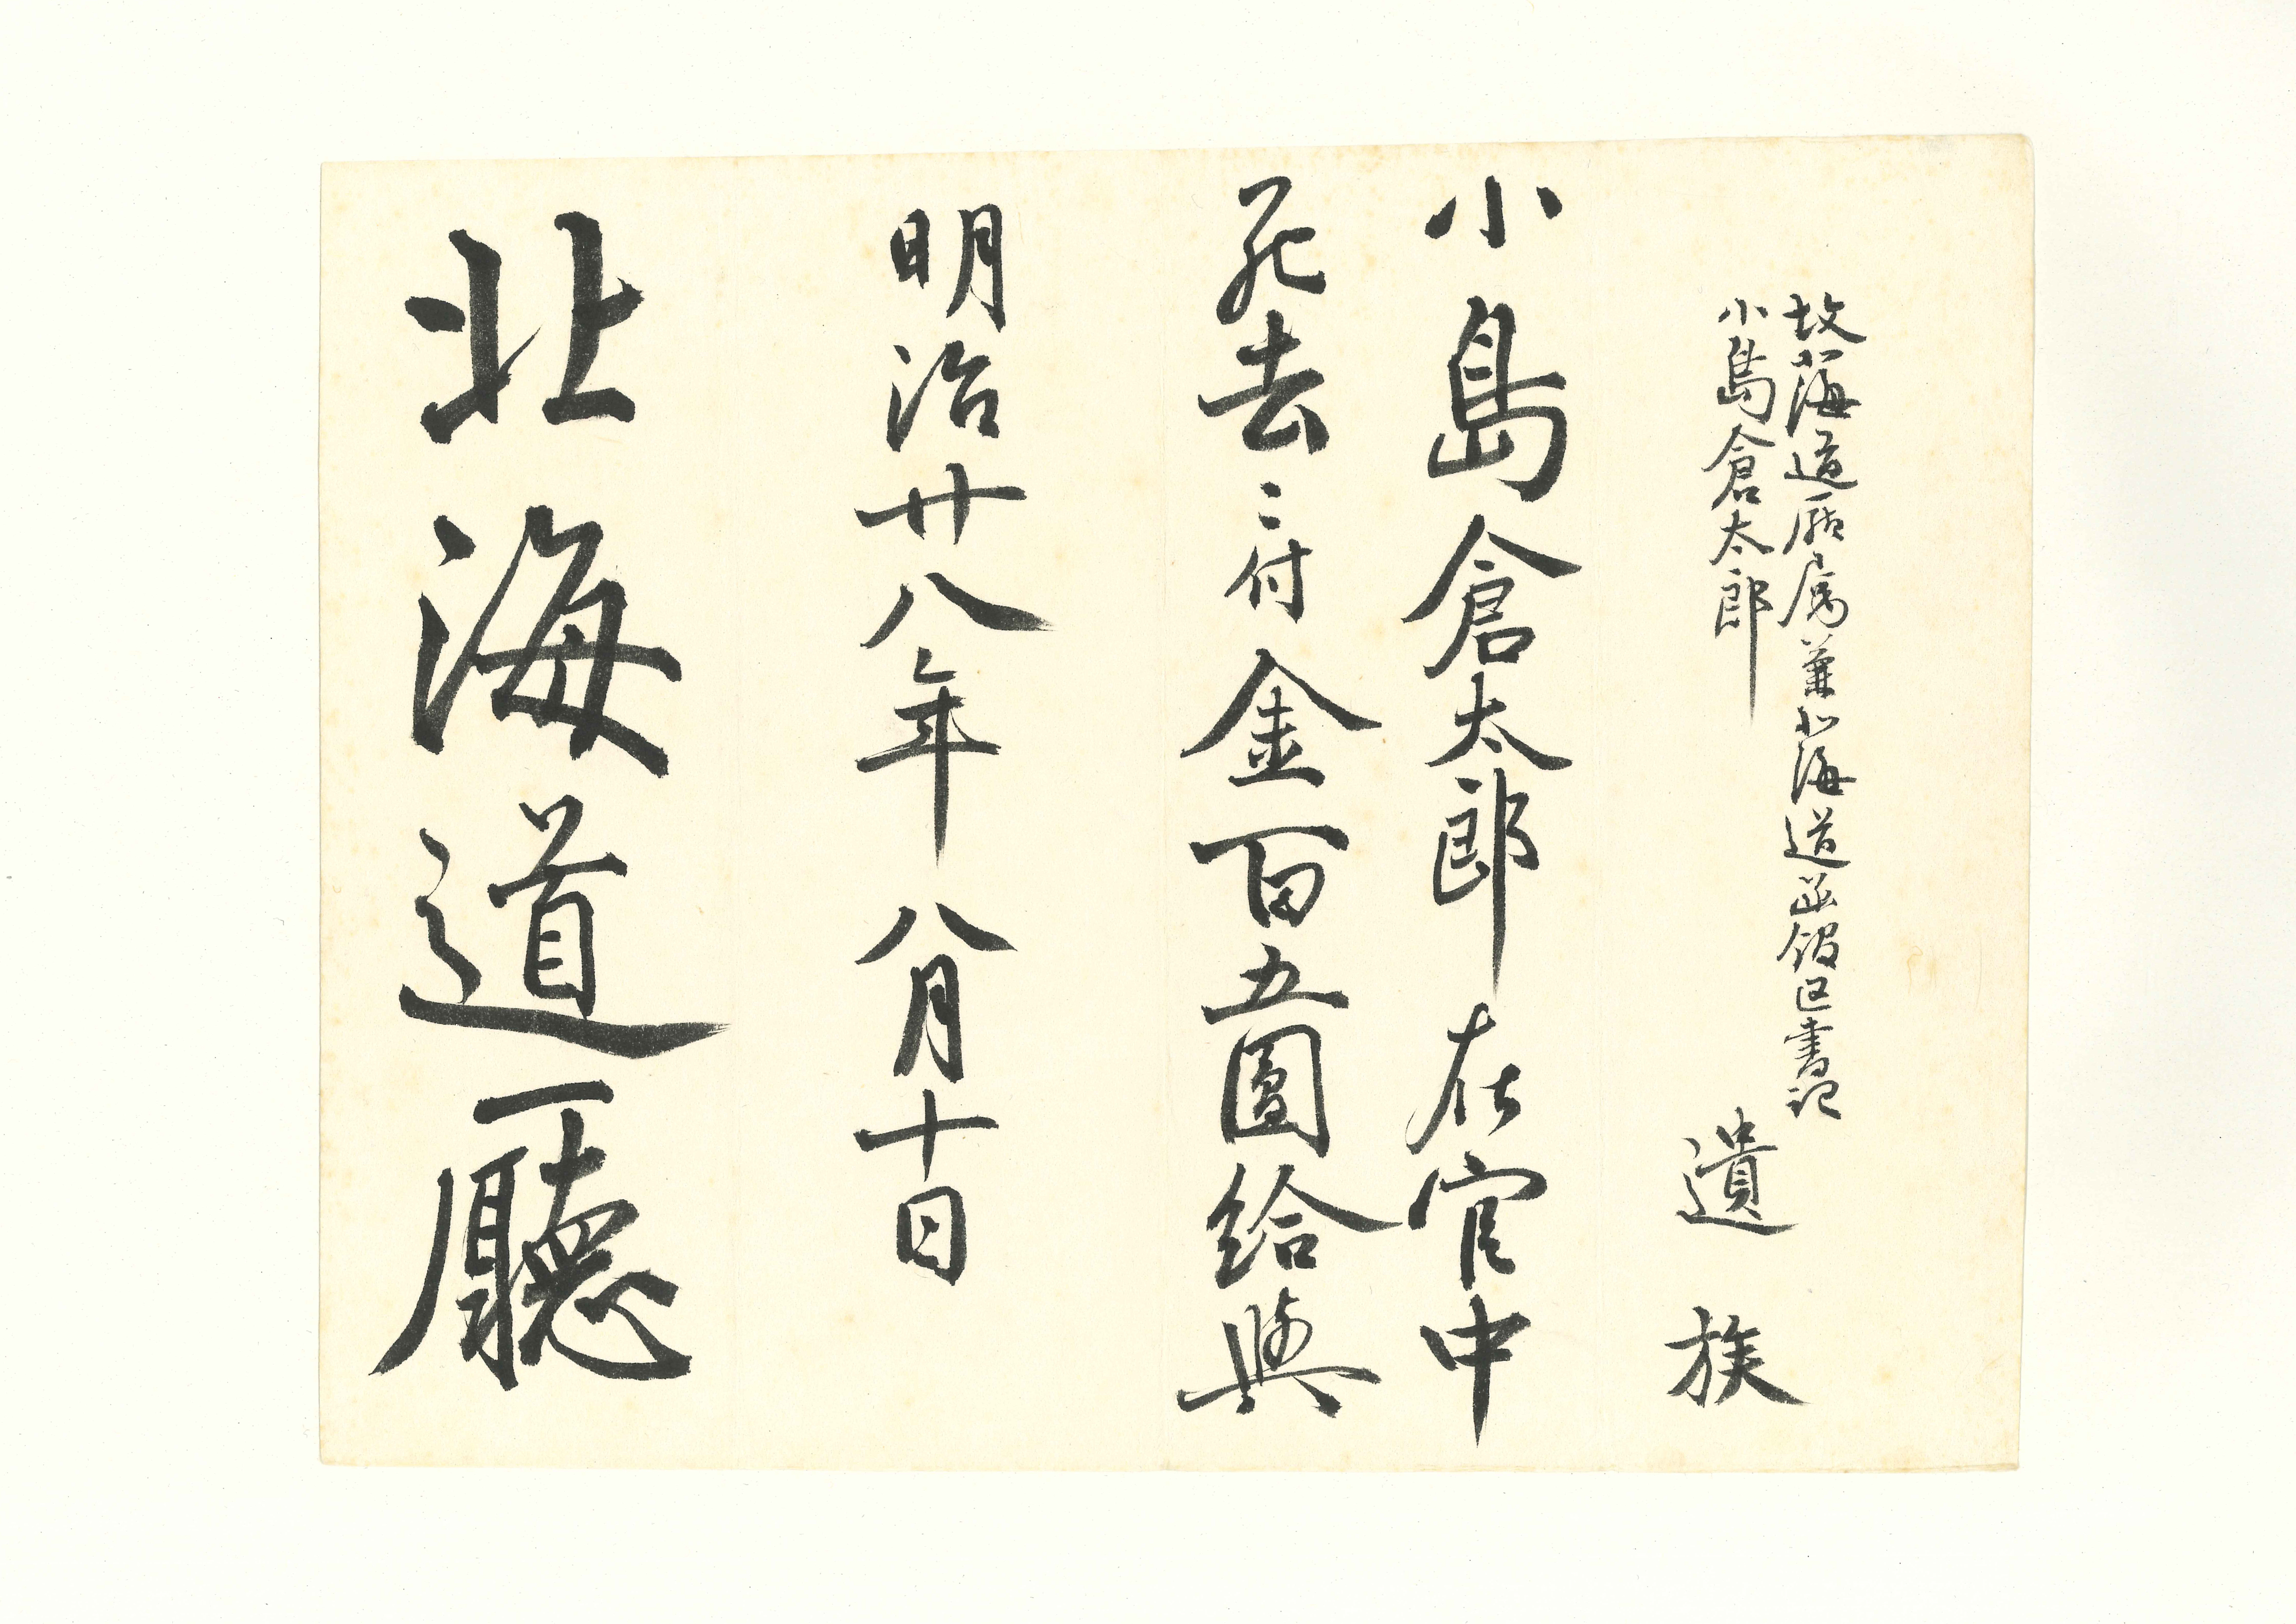 故北海道廳属兼北海道函館区書記
小島倉太郎
遺族
小島倉太郎在官中
死去ニ付金百五圓給與
明治廿八年八月十日
北海道廳